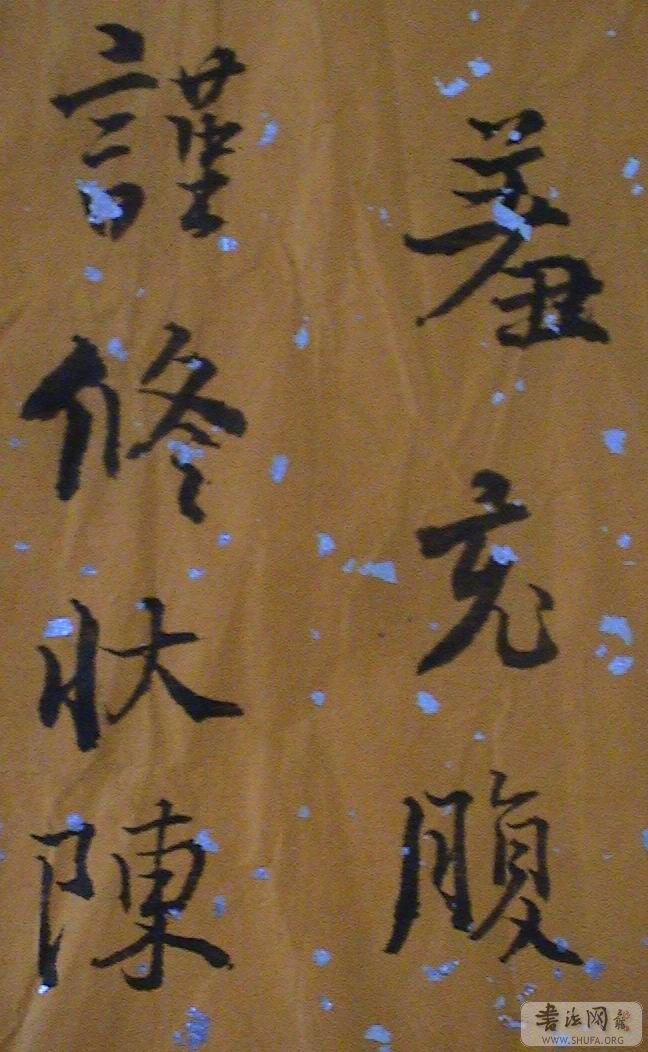 羞充腹
謹修狀陳
书法网
WWW.SHUFA.ORG